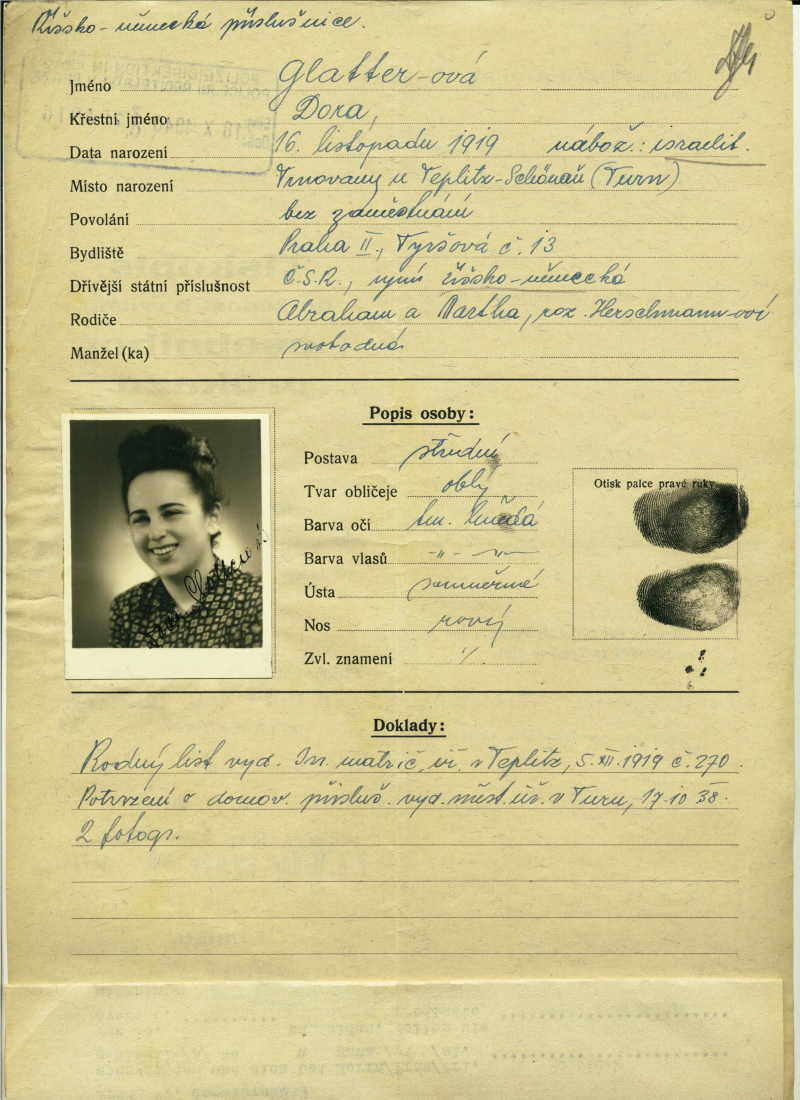 Říšsko-německá příslušnice.
Jméno Glatter-ová
Křestní jméno Dora,
Data narození 16. listopadu 1919 nábož.: israelit.
Místo narození Trnovany u Teplitz-Schönau (Turn)
Povoláni bez zaměstnání
Bydliště Praha II., Tyršová č. 13
Dřívější státní příslušnost Č.S.R., nyní říšsko-německá
Rodiče Abraham a Martha, roz. Herschmann-ová
Manžel (ka) svobodná
Popis osoby:
Postava střední
Tvar obličeje oblý
Barva očí tm. hnědá
Barva vlasů -"-
Ústa souměrné
Nos rovný
Zvl. znamení
Otisk palce pravé ruky
Doklady:
Rodný list vyd. Isr. matrič. úř. v Teplitz, 5. XII. 1919 č. 270.
Potvrzení o domov. přísluš. vyd. měst. úř. v Turn, 17.10 38.
2 fotogr.